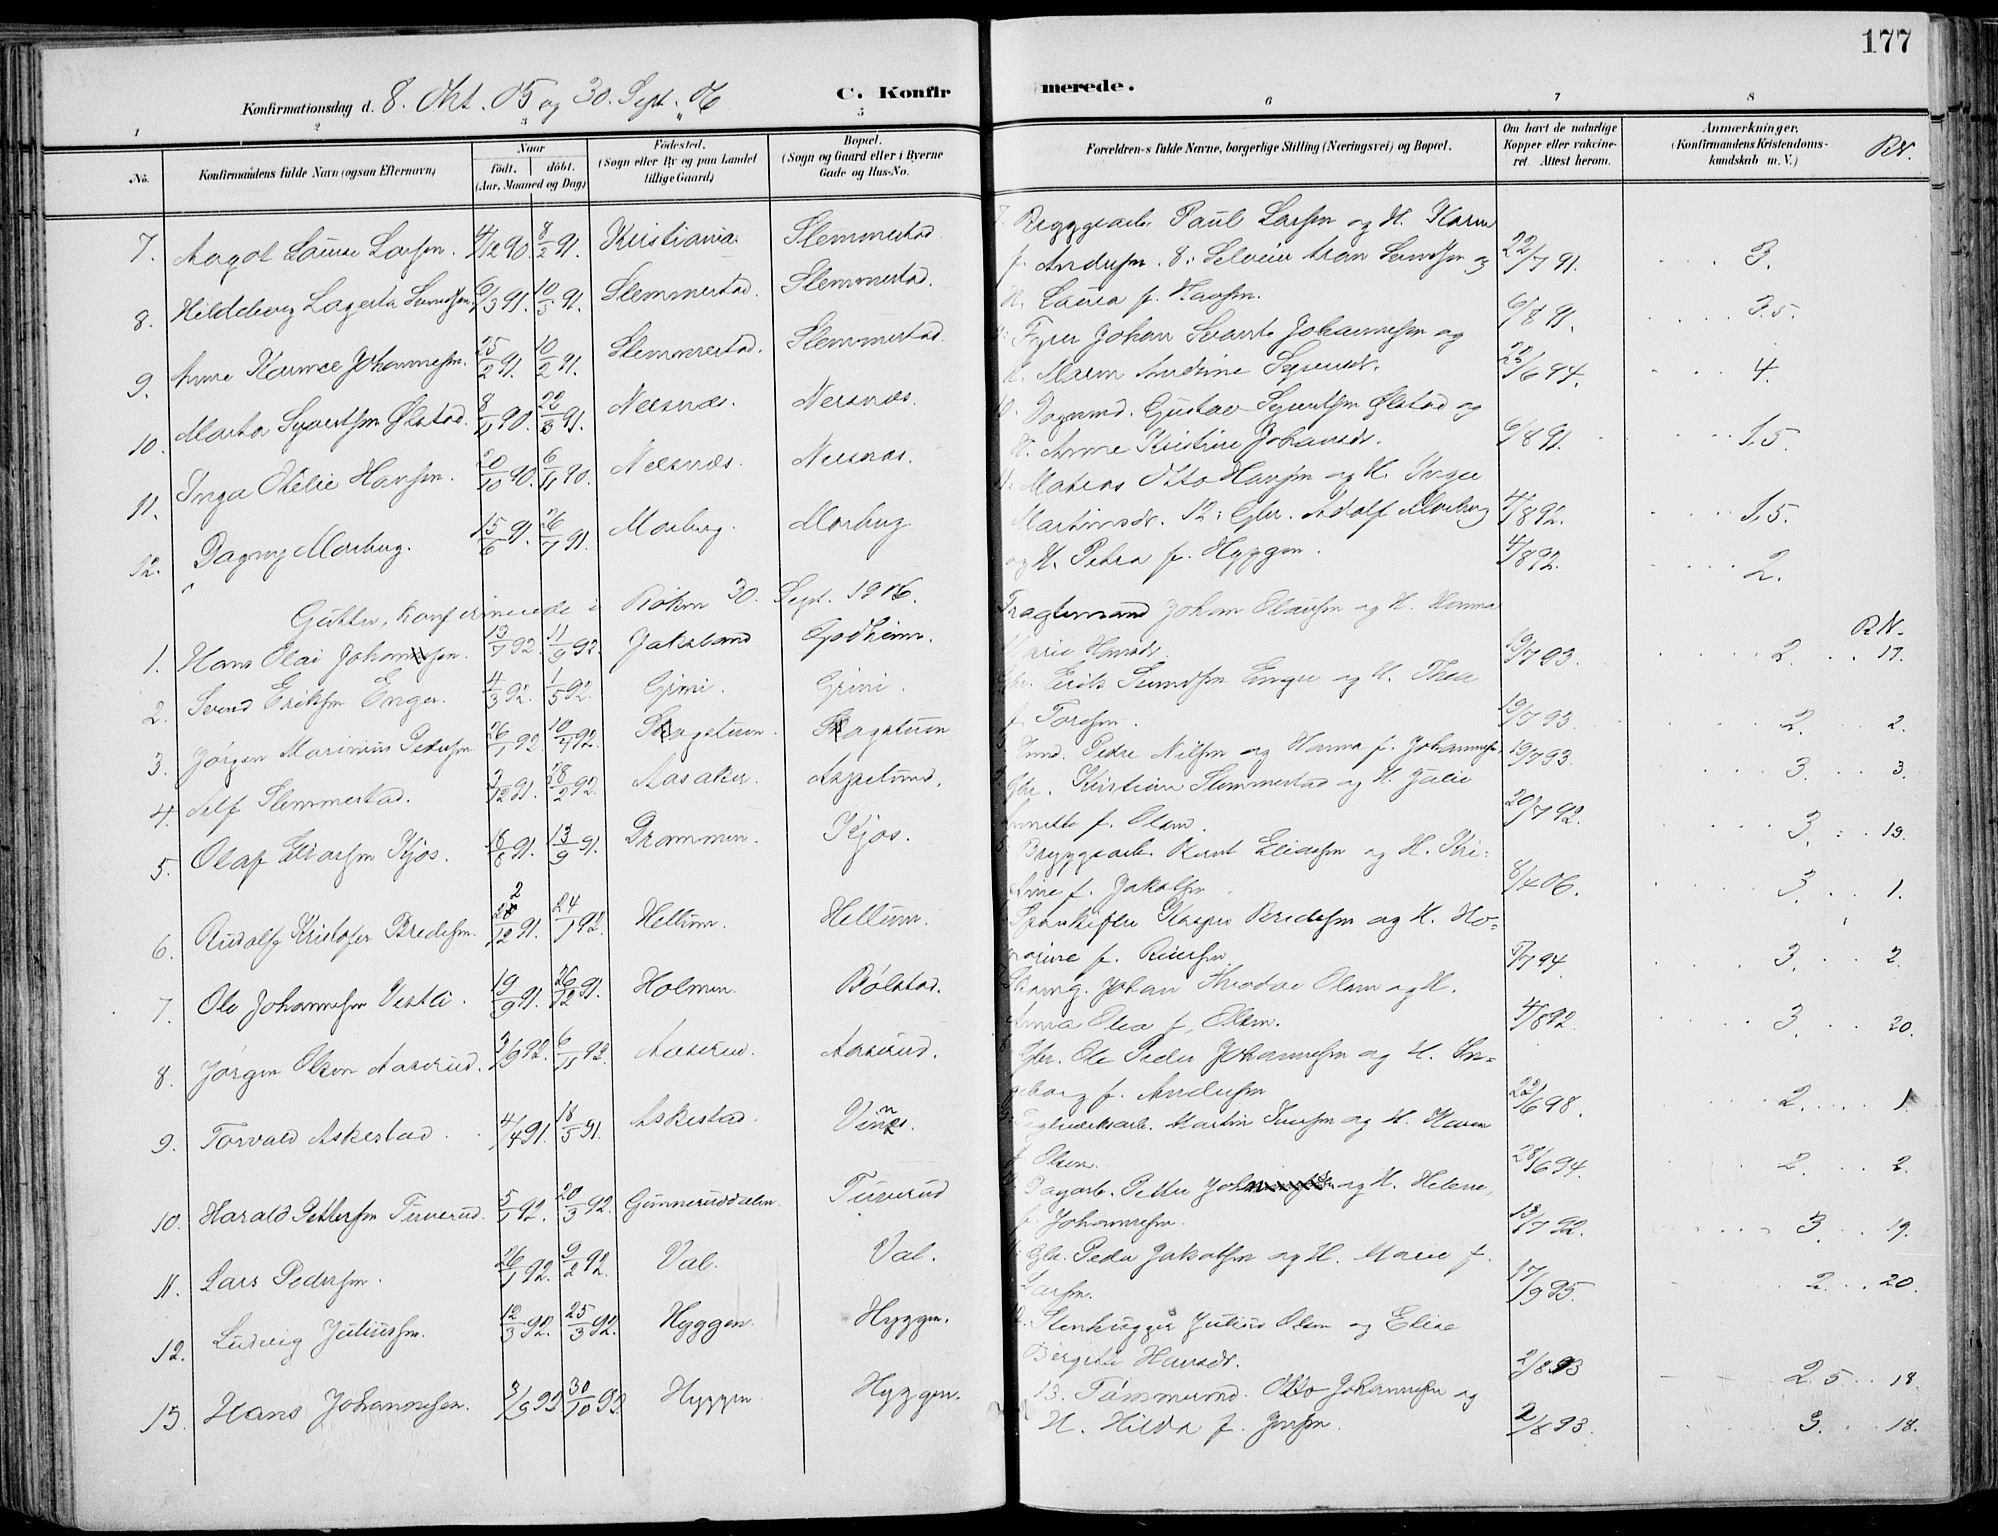 177
Konfirmationsdag d. 8. Okt. 05 og 30. Sept. 06
C. Konfirmerede.
1 2 3 5 6 7 8
No.
Konfirmandens fulde Navn (ogsaa Efternavn)
Naar
født. døbt.
(Aar, Maaned og Dag)
Fødested.
(Sogn eller By og paa Landet
tillige Gaard)
Bopæl.
(Sogn og Gaard eller i Byerne
Gade og Hus-No.
Forældrenes fulde Navne, borgerlige Stilling (Næringsvei) og Bopæl.
Om havt de naturlige
Kopper eller vakcine-
ret. Attest herom.
Anmærkninger.
(Konfirmandens Kristendoms-
kundskab m. V.)
RN.
7. Aagot Louise Larsen. 4/12 90. 8/2 91. Kristiania. Slemmestad.
7. Bryggearb. Paul Larsen og H. Karen
f. Andersen. 8: Selveier Aron Svendsen og 22/7 91. 3.
8. Hildeborg Lagerta Svendsen 6/3 91. 10/5 91. Slemmestad. Slemmestad.
H. Laura f. Hansen. 6/8 91. 3.5.
9. Anne Karine Johannesen. 25/2 91. 10/2 91. Slemmestad. Slemmestad.
Johan Johannesen og
H. Maren Andrine Syversdt. 22/6 94. 4.
10. Marta Syvertsen Ølstad. 8/11 90. 22/3 91. Nersnæs. Nersnæs.
10. Gustav Syvertsen Ølstad og
H. Anne Kristine Johansdt. 6/8 91. 1.5
11. Inga Otelie Hansen. 20/10 90. 6/11 90. Nersnæs. Nersnæs.
11. Matros Otto Hansen og H. Inger
Martinsdt. 12: Gbr. Adolf Morberg 4/8 92. 1.5.
12. Dagny Morberg. 15/6 91. 26/7 91. Morberg. Morberg
og H. Petra f. Hyggen. 4/8 92. 2.
Gutter, konfirmerede i Røken 30. Sept. 1906.
RN.
1. Hans Olai Johansen. 13/7 92. 11/9 92. Jaksland Godheim.
Johan Olausen og H. Hanna
Marie Hansdt. 19/7 93. 2. 17.
2. Svend Eriksen Enger. 4/3 92. 1/5 92. Grini. Grini.
Gbr. Erik Svendsen Enger og H. Thea
f. Toresen. 19/7 93. 2. 2.
3. Jørgen Marinius Pedersen 26/1 92 10/4 92. Skagstuen. Skagstuen
Peder Nilsen og Hanna f. Johannesen 19/7 93. 3. 3.
4. Alf Slemmestad. 3/12 91. 28/2 92. Aasaker. Aspelund.
Gbr. Kristian Slemmestad og H. Julie
Annette f. Olsen. 20/7 92. 3. 19.
5. Olaf Eliassen Kjos. 18/8 91. 13/9 91. Drammen. Kjos.
5. Bryggearb. Knut Eliassen og H. Kri-
stine f. Jakobsen 8/4 06. 3. 1.
6. Rudolf Kristofer Bredesen. 22/12 91. 24/1 92. Hellum. Hellum.
Kasper Bredesen og H. Ho-
norine f. Reiersen 17/7 94. 3. 2.
7. Ole Johannesen Vestli. 19/9 91. 26/12 91. Holmen. Bølstad.
Johan Theodor Olsen og H.
Anna Olea f. Olsen. 4/8 92. 3. 20.
8. Jørgen Olsen Aaserud. 3/9 92. 6/11 92. Aaserud. Aaserud.
Gbr. Ole Peder Johannesen og H. In-
geborg f. Andersen 22/6 98. 2. 1
9. Torvald Askestad. 4/4 91. 18/5 91. Askestad. Vinnes.
Teglverksarb. Martin Iversen og H. Karen
f. Olsen. 28/6 94. 2. 2.
10. Harald Pettersen Turverud. 5/1 92. 20/3 92. Gunneruddalen. Turverud
Dagarb. Petter og H. Helene,
f. Johannesen. 13/7 92. 3. 19.
11. Lars Pedersen. 26/1 92. 9/2 92. Val. Val.
Gbr. Peder Jakobsen og H. Marie f.
Larsen. 17/9 95. 2. 20.
12. Ludvig Juliussen. 12/3 92. 25/3 92. Hyggen. Hyggen.
12. Stenhugger Julius Olsen og Elise
Birgitte Hansdt. 2/8 93 2.5. 18.
13. Hans Johannesen. 3/9 92 30/10 92. Hyggen. Hyggen.
13. Tømmermd. Otto Johannesen og
H. Hilda f. Jensen. 2/8 93. 3. 18.